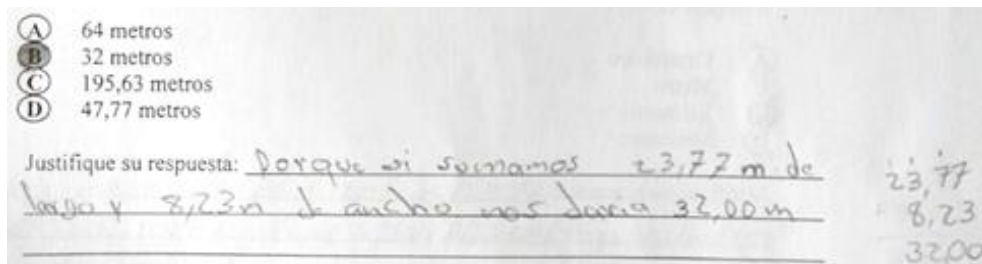 A 64 metros
B 32 metros
C 195,63 metros
D 47,77 metros
Justifique su respuesta: Porque si sumamos 23,77 m de
largo y 8,23 m de ancho nos daria 32,00 m
23,77
+ 8,23
32,00